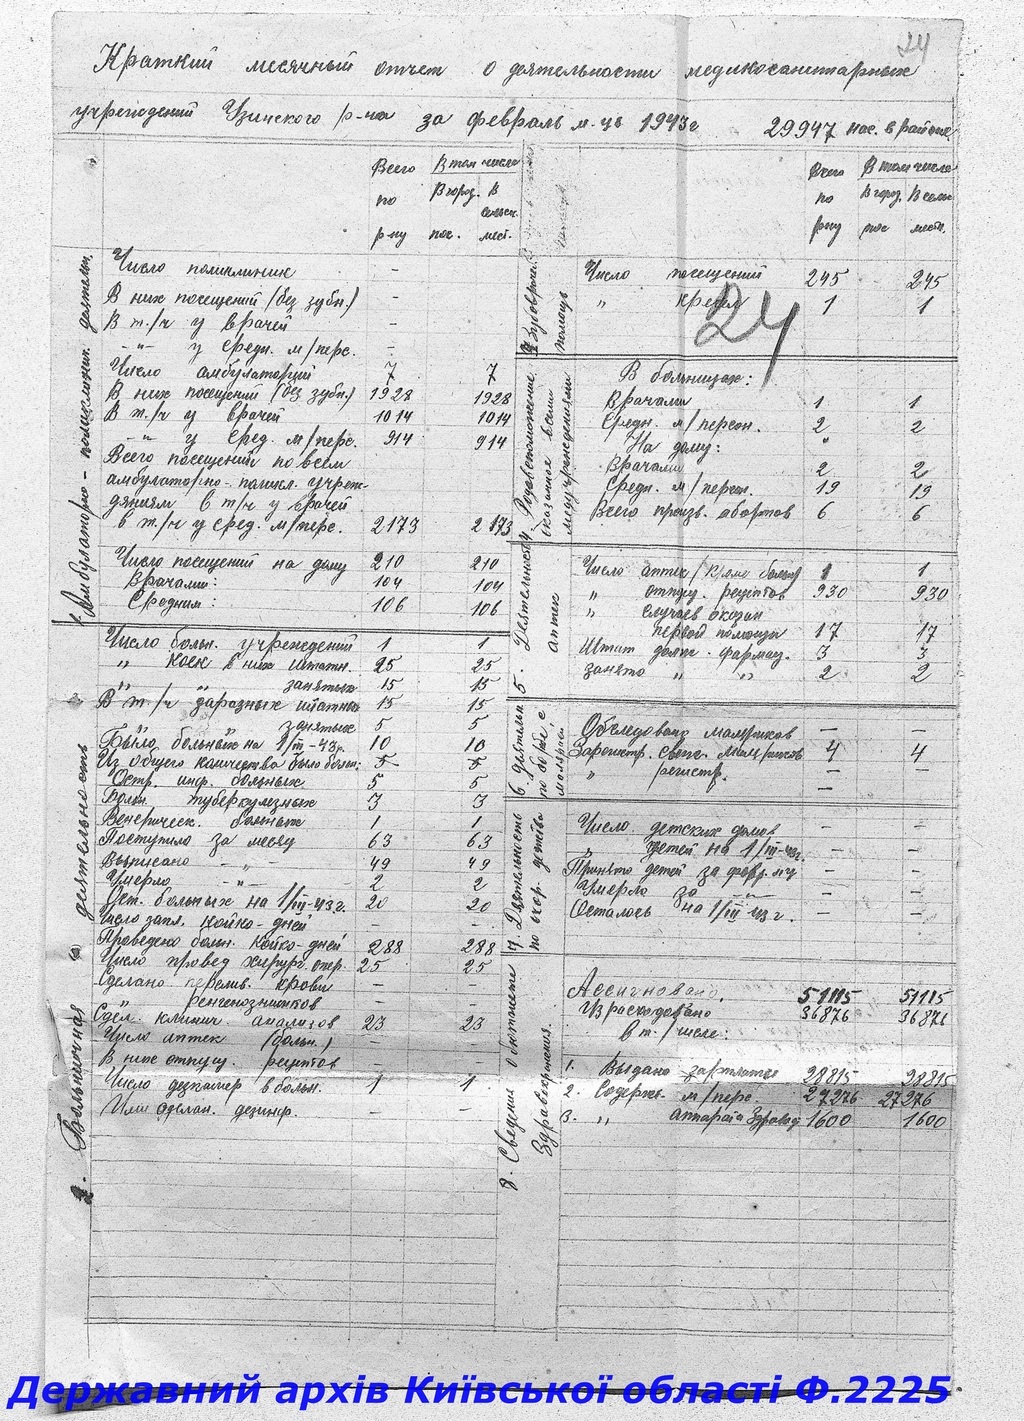 24
Краткий месячный отчет о деятельности медикосанитарных
учреждений Узинского р-на за февраль м-ць 1943 г 29947 нас. в районе
Всего по р-ну
В том числе
В город. пос.
В сельск. мест.
1. Амбулаторно-поликлинич. деятельн.
Число поликлиник –
В них посещений (без зубн.) –
В т/ч у врачей –
-"- у средн. м/перс. –
Число амбулаторий 7 7
В них посещений (без зубн.) 1928 1928
В т/ч у врачей 1014 1014
-"- у сред. м/перс. 914 914
Всего посещений по всем
амбулаторно-поликл. учреж-
дениям в т/ч у врачей
в т/ч у сред. м/перс. 2173 2173
Число посещений на дому 210 210
Врачами: 104 104
Средним: 106 106
2. Больничная деятельность
Число больн. учреждений 1 1
" коек в них штатн. 25 25
" " занятых 15 15
В т/ч заразных штатных 15 15
" занятых 5 5
Было больных на 1/III-43г. 10 10
Из общего количества было больн: 5 5
Остр. инф. больных 5 5
Больн. туберкулезных 3 3
Венерическ. больных 1 1
Поступило за месяц 63 63
Выписано -"- 49 49
Умерло -"- 2 2
Ост. больных на 1/III-43г. 20 20
Число запл. койко-дней – –
Проведено больн. койко-дней 288 288
Число провед хирург. опер. 25 25
Сделано перелив. крови – –
" ренгеноснимков – –
Сдел. клинич. анализов 23 23
Число аптек (больн.) – –
В них отпущ. рецептов – –
Число дезкамер в больн. 1 1
Ими сделан. дезинф. – –
Всего по р-ну
В том числе
В город. пос
В сельс. местн.
3. Зубоврачеб. помощь
Число посещений 245 245
" кресел 1 1
24
4. Родовспоможение оказанное всеми медучреждениями
В больницах:
Врачами 1 1
Средн. м/персон. 2 2
На дому: "
Врачами 2 2
Средн. м/персон. 19 19
Всего произв. абортов 6 6
5. Деятельность аптек
Число аптек (кроме больн) 1 1
" отпущ. рецептов 930 930
" случаев оказан
первой помощи 17 17
Штат долж. фармац. 3 3
занято " " 2 2
6. деятельн по борьбе с малярией
Обследовано маляриков – –
Зарегистр. свеж. маляриков 4 4
" регистр. – –
–
7. Деятельность по охр. детства
Число детских домов – –
" детей на 1/III-43г. – –
Принято детей за февр. м-ц – –
Умерло за -"- – –
Осталось на 1/III-43 г. – –
8. Сведения о бюджете Здравоохранения.
Ассигновано. 51115 51115
Израсходовано 36876 36876
в т/числе:
1. Выдано зарплаты 28815 28815
2. Содерж. м/перс. 27276 27276
3. " аппарата Здравод 1600 1600
Державний архів Київської області Ф.2225